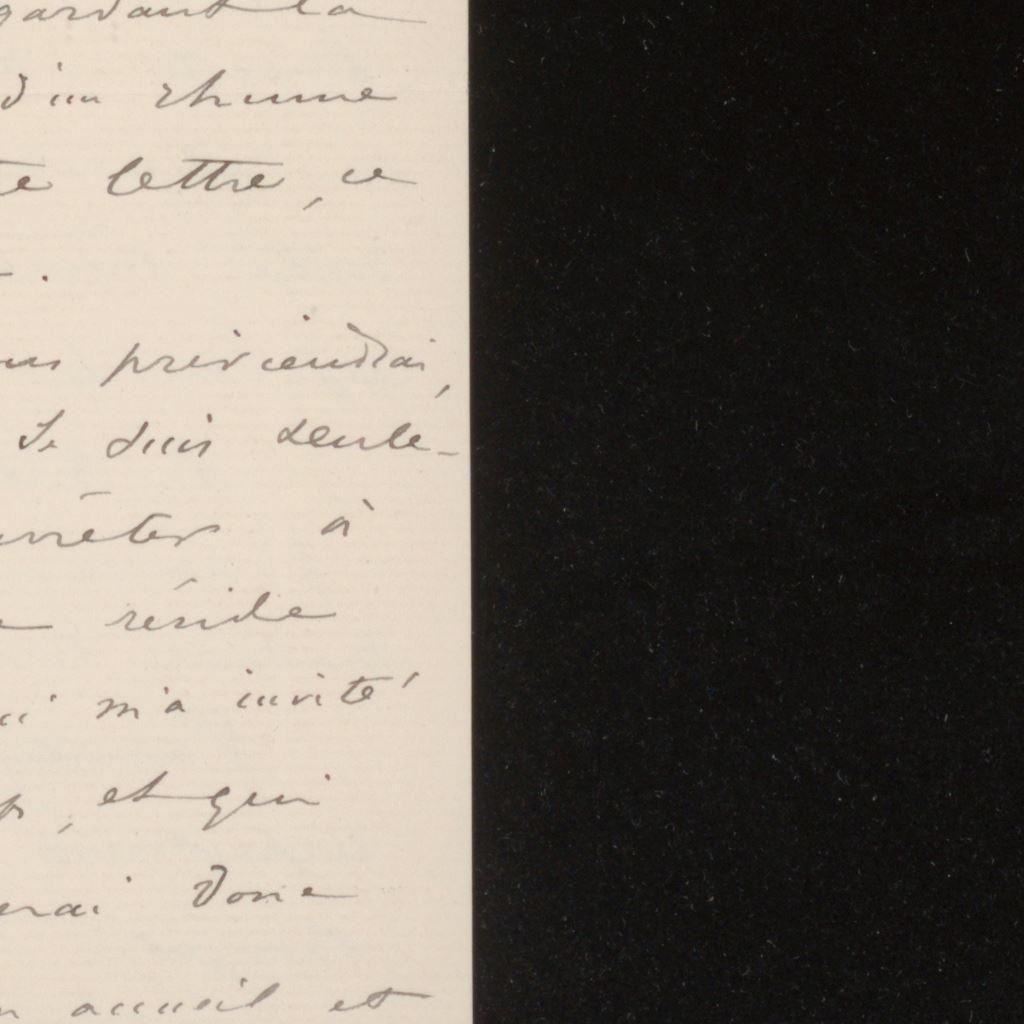 gardant la
d'un rhume
te lettre, ce
previendrai,
Je suis seule-
arrêter à
réside
qui m'a invité
, et qui
erai donc
accueil et